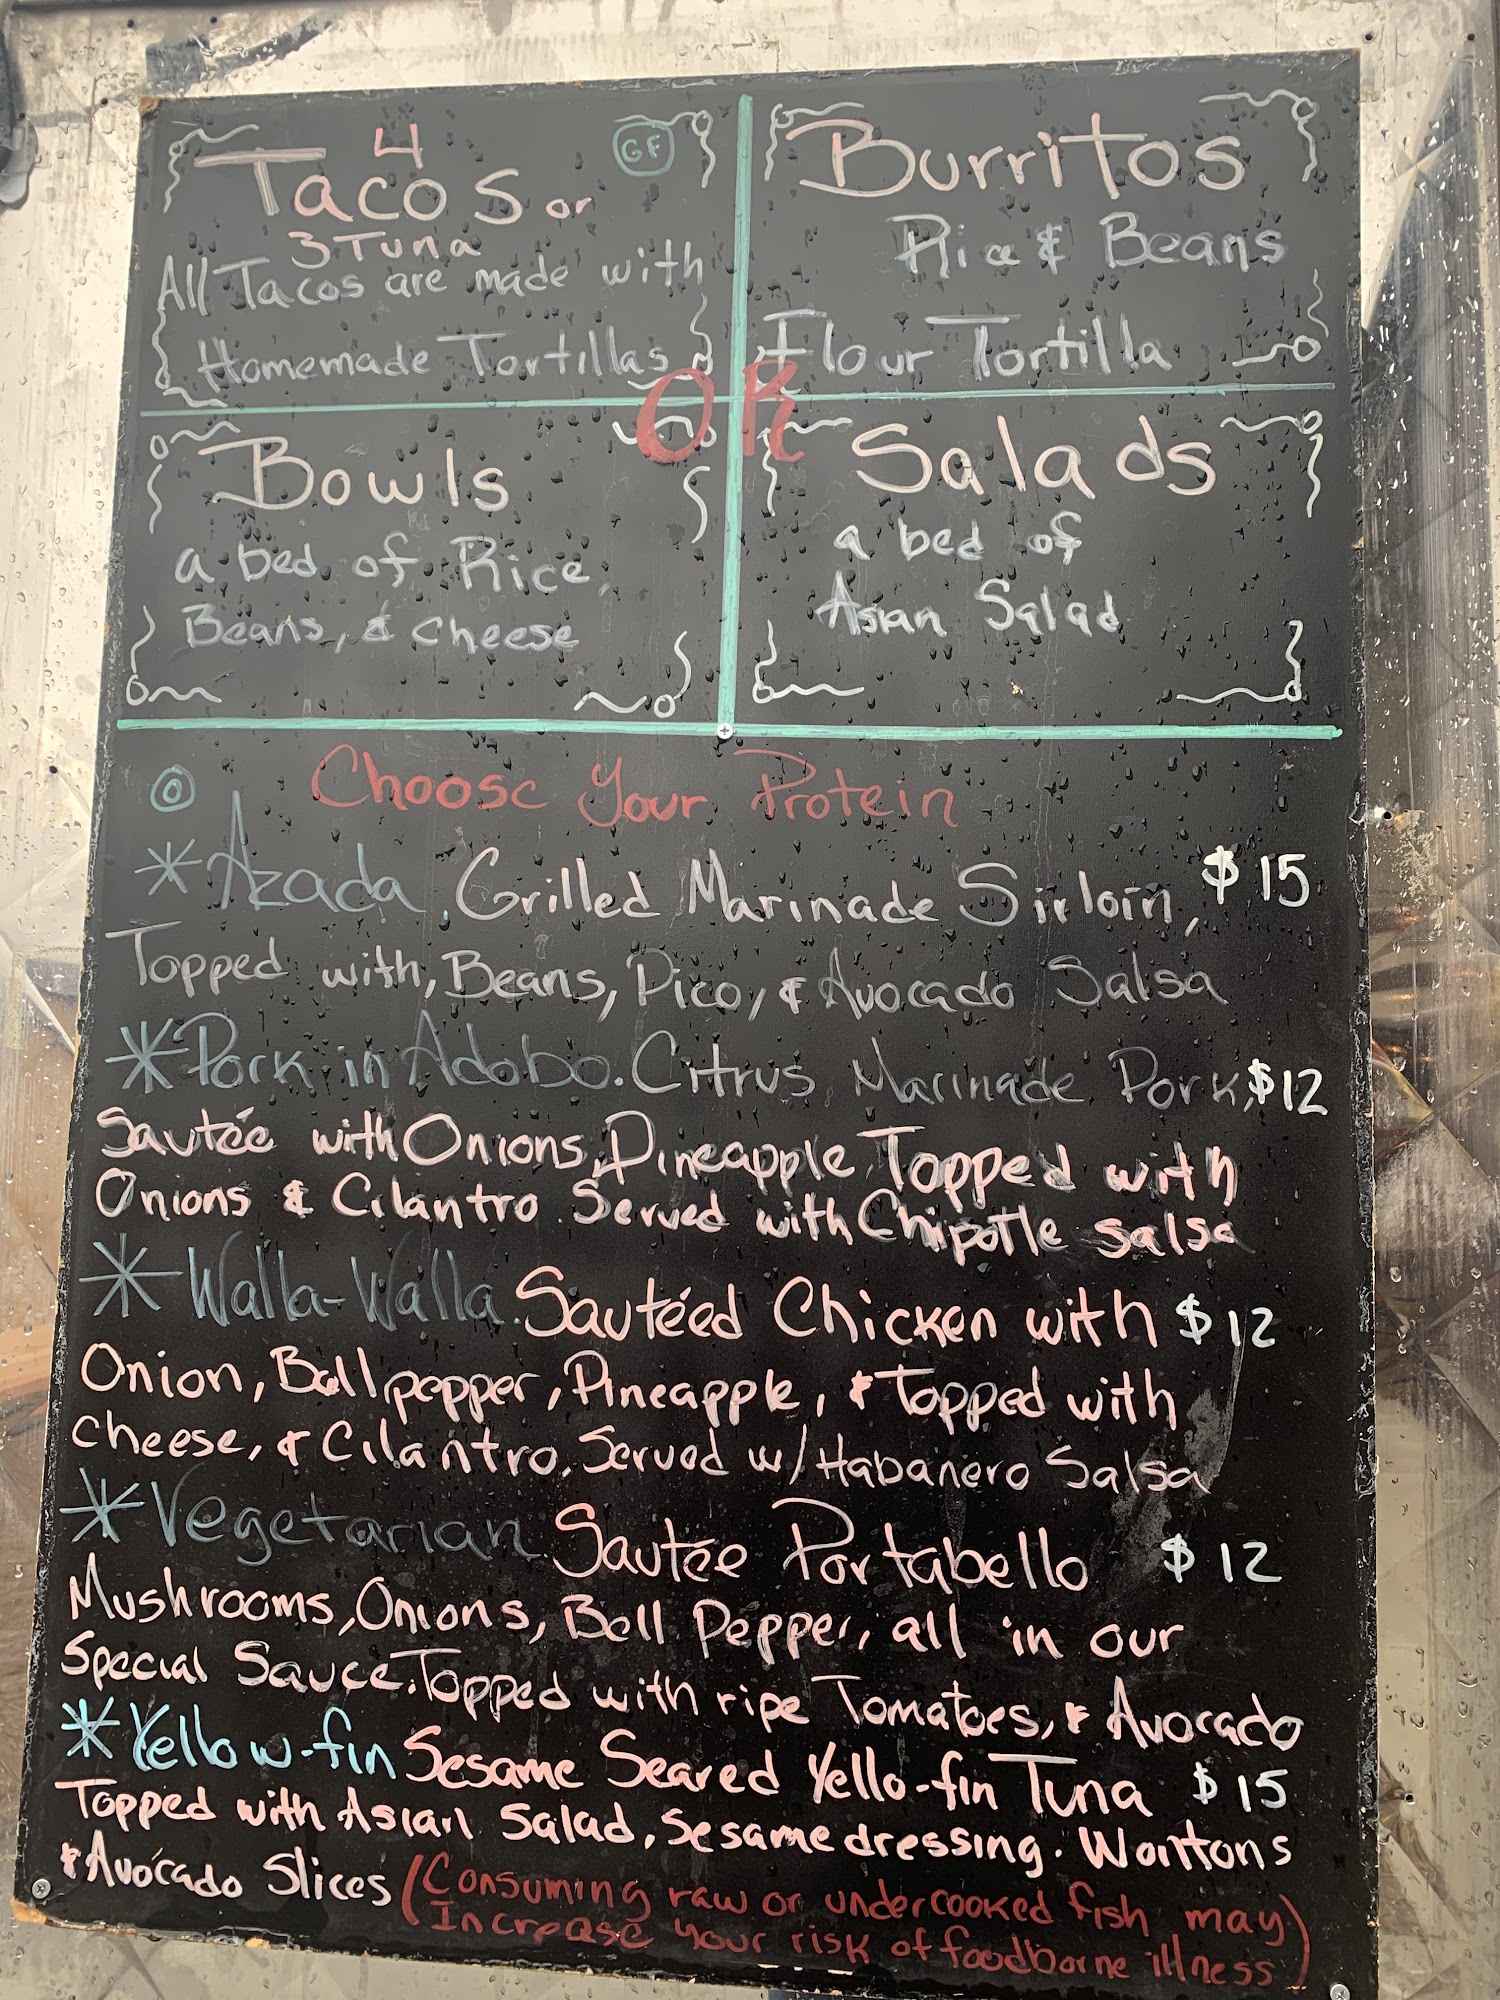 4 GF
Tacos or
3 Tuna
All Tacos are made with
Homemade Tortillas
Burritos
Rice & Beans
Flour Tortilla
OR
Bowls
a bed of Rice,
Beans, & cheese
Salads
a bed of
Asian Salad
Choose Your Protein
*Azada. Grilled Marinade Sirloin, $15
Topped with, Beans, Pico, & Avocado Salsa
*Pork in Adobo. Citrus Marinade Pork, $12
Sautée with Onions, Pineapple Topped with
Onions & Cilantro. Served with Chipotle salsa
*Walla-Walla. Sautéed Chicken with $12
Onion, Bell pepper, Pineapple, & Topped with
cheese, & Cilantro. Served w/ Habanero Salsa
*Vegetarian Sautée Portabello $12
Mushrooms, Onions, Bell Pepper, all in our
Special Sauce. Topped with ripe Tomatoes, & Avocado
*Yellow-fin Sesame Seared Yello-fin Tuna $15
Topped with Asian Salad, Sesame dressing. Wontons
& Avocado Slices (Consuming raw or undercooked fish may
Increase your risk of foodborne illness)